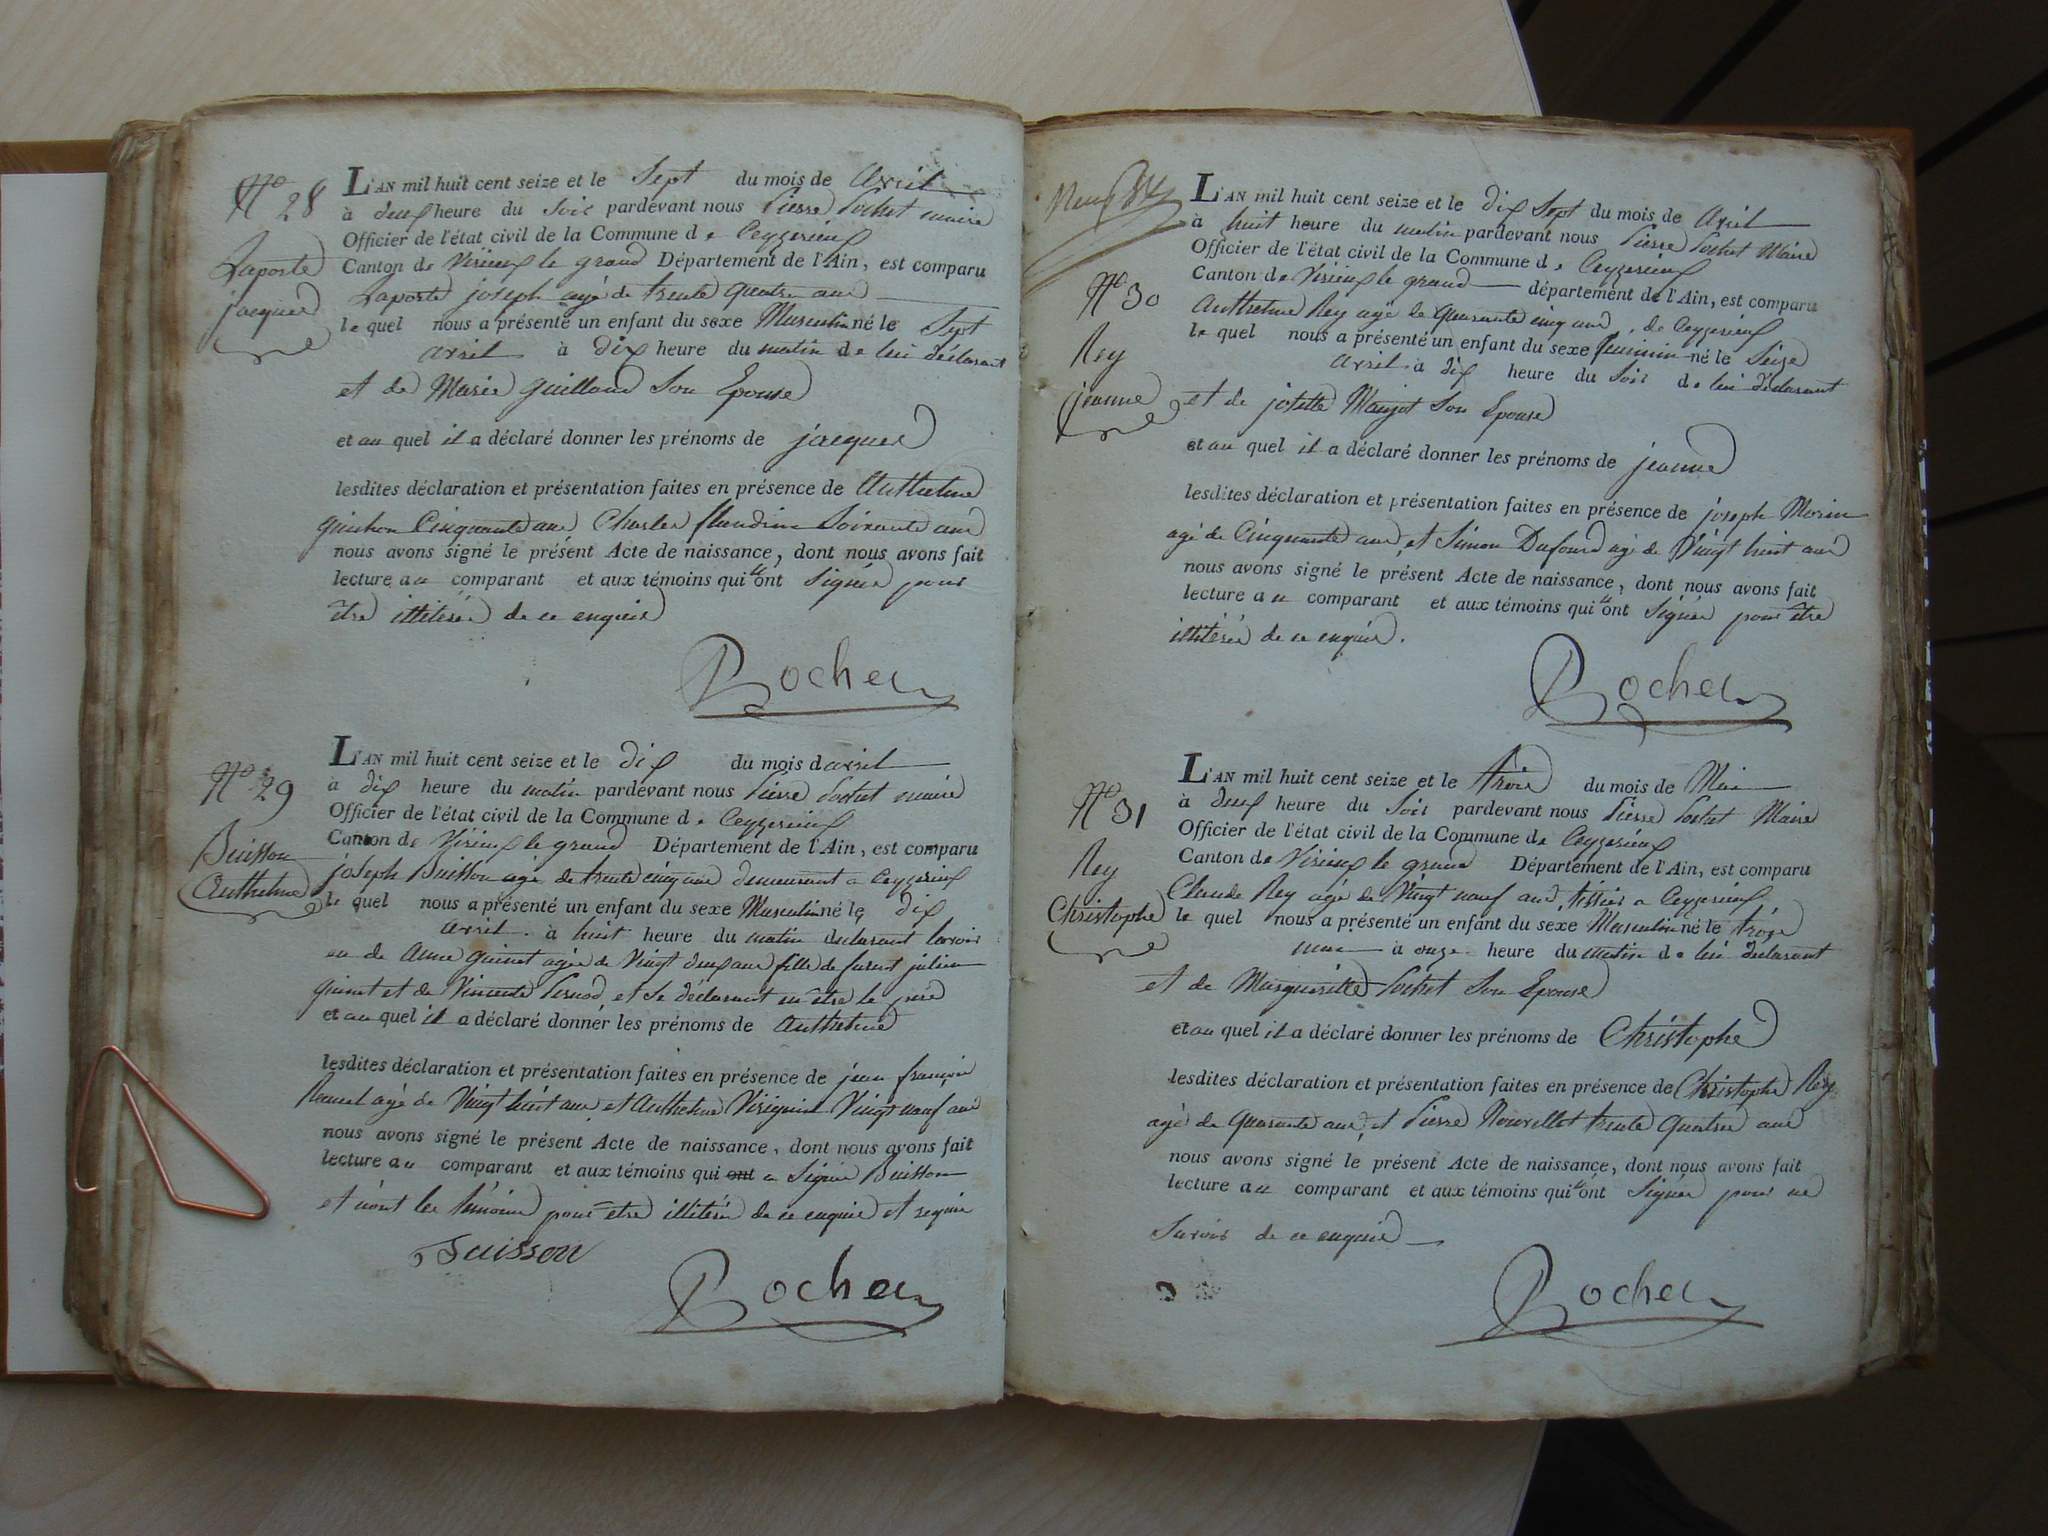 N.o 28
Laporte
jacques
L'AN mil huit cent seize et le Sept du mois de avril
à deux heure du Soir pardevant nous Pierre Pochet maire
Officier de l'état civil de la Commune de Ceyzerieux
Canton de Virieux le grand Département de l'Ain, est comparu
Laporte joseph agé de trente quatre ans
le quel nous a présenté un enfant du sexe Masculin né le Sept
avril à dix heure du matin de lui déclarant
et de Marie guilloud Son Epouse
et au quel il a déclaré donner les prénoms de jacques
lesdites déclaration et présentation faites en présence de Anthelme
guichon Cinquante ans Charles flandrin Soixante ans
nous avons signé le présent Acte de naissance, dont nous avons fait
lecture au comparant et aux témoins qui n'ont Signés pour
être illitérés de ce enquis
Rochet
N.o 29
Buisson
Anthelme
L'AN mil huit cent seize et le dix du mois d'avril
à dix heure du matin pardevant nous Pierre Pochet maire
Officier de l'état civil de la Commune de Ceyzerieux
Canton de Virieux le grand Département de l'Ain, est comparu
joseph Buisson agé de trente cinq ans demeurant a Ceyzerieux
le quel nous a présenté un enfant du sexe Masculin né le dix
avril à huit heure du matin declarant lavoir
eu de Anne guinet agée de Vingt deux ans fille de furent julien
guinet et de Vincente Pernod, et Se déclarant en être le père
et au quel il a déclaré donner les prénoms de Anthelme
lesdites déclaration et présentation faites en présence de jean françois
agé de Vingt huit ans et Anthelme Vingt neuf ans
nous avons signé le présent Acte de naissance, dont nous avons fait
lecture au comparant et aux témoins qui ont a Signé Buisson
et n'ont les témoins pour être illitérés de ce enquis et requis
Buisson
Rochet
N.o 30
Rey
jeanne
L'AN mil huit cent seize et le dix Sept du mois de avril
à huit heure du matin pardevant nous Pierre Pochet Maire
Officier de l'état civil de la Commune de Ceyzerieux
Canton de Virieux le grand département de l'Ain, est comparu
Anthelme Rey agé de quarante cinq ans, de Ceyzerieux
le quel nous a présenté un enfant du sexe feminin né le Seize
avril à dix heure du Soir de lui déclarant
et de josette Maujot Son Epouse
et au quel il a déclaré donner les prénoms de jeanne
lesdites déclaration et présentation faites en présence de joseph Morin
agé de Cinquante ans, et Simon Dufourd agé de Vingt huit ans
nous avons signé le présent Acte de naissance, dont nous avons fait
lecture au comparant et aux témoins qui n'ont Signés pour être
illitérés de ce enquis.
Rochet
N.o 31
Rey
Christophe
L'AN mil huit cent seize et le trois du mois de Mai
à deux heure du Soir pardevant nous Pierre Pochet Maire
Officier de l'état civil de la Commune de Ceyzerieux
Canton de Virieux le grand Département de l'Ain, est comparu
Claude Rey agé de Vingt neuf ans, tissier a Ceyzerieux
le quel nous a présenté un enfant du sexe Masculin né le trois
mai à onze heure du matin de lui declarant
et de Marguerite Pochet Son Epouse
et au quel il a déclaré donner les prénoms de Christophe
lesdites déclaration et présentation faites en présence de Christophe Rey
agé de quarante ans, et Pierre Nouvellet trente quatre ans
nous avons signé le présent Acte de naissance, dont nous avons fait
lecture au comparant et aux témoins qui n'ont Signés pour ne
Savoir de ce enquis
Rochet